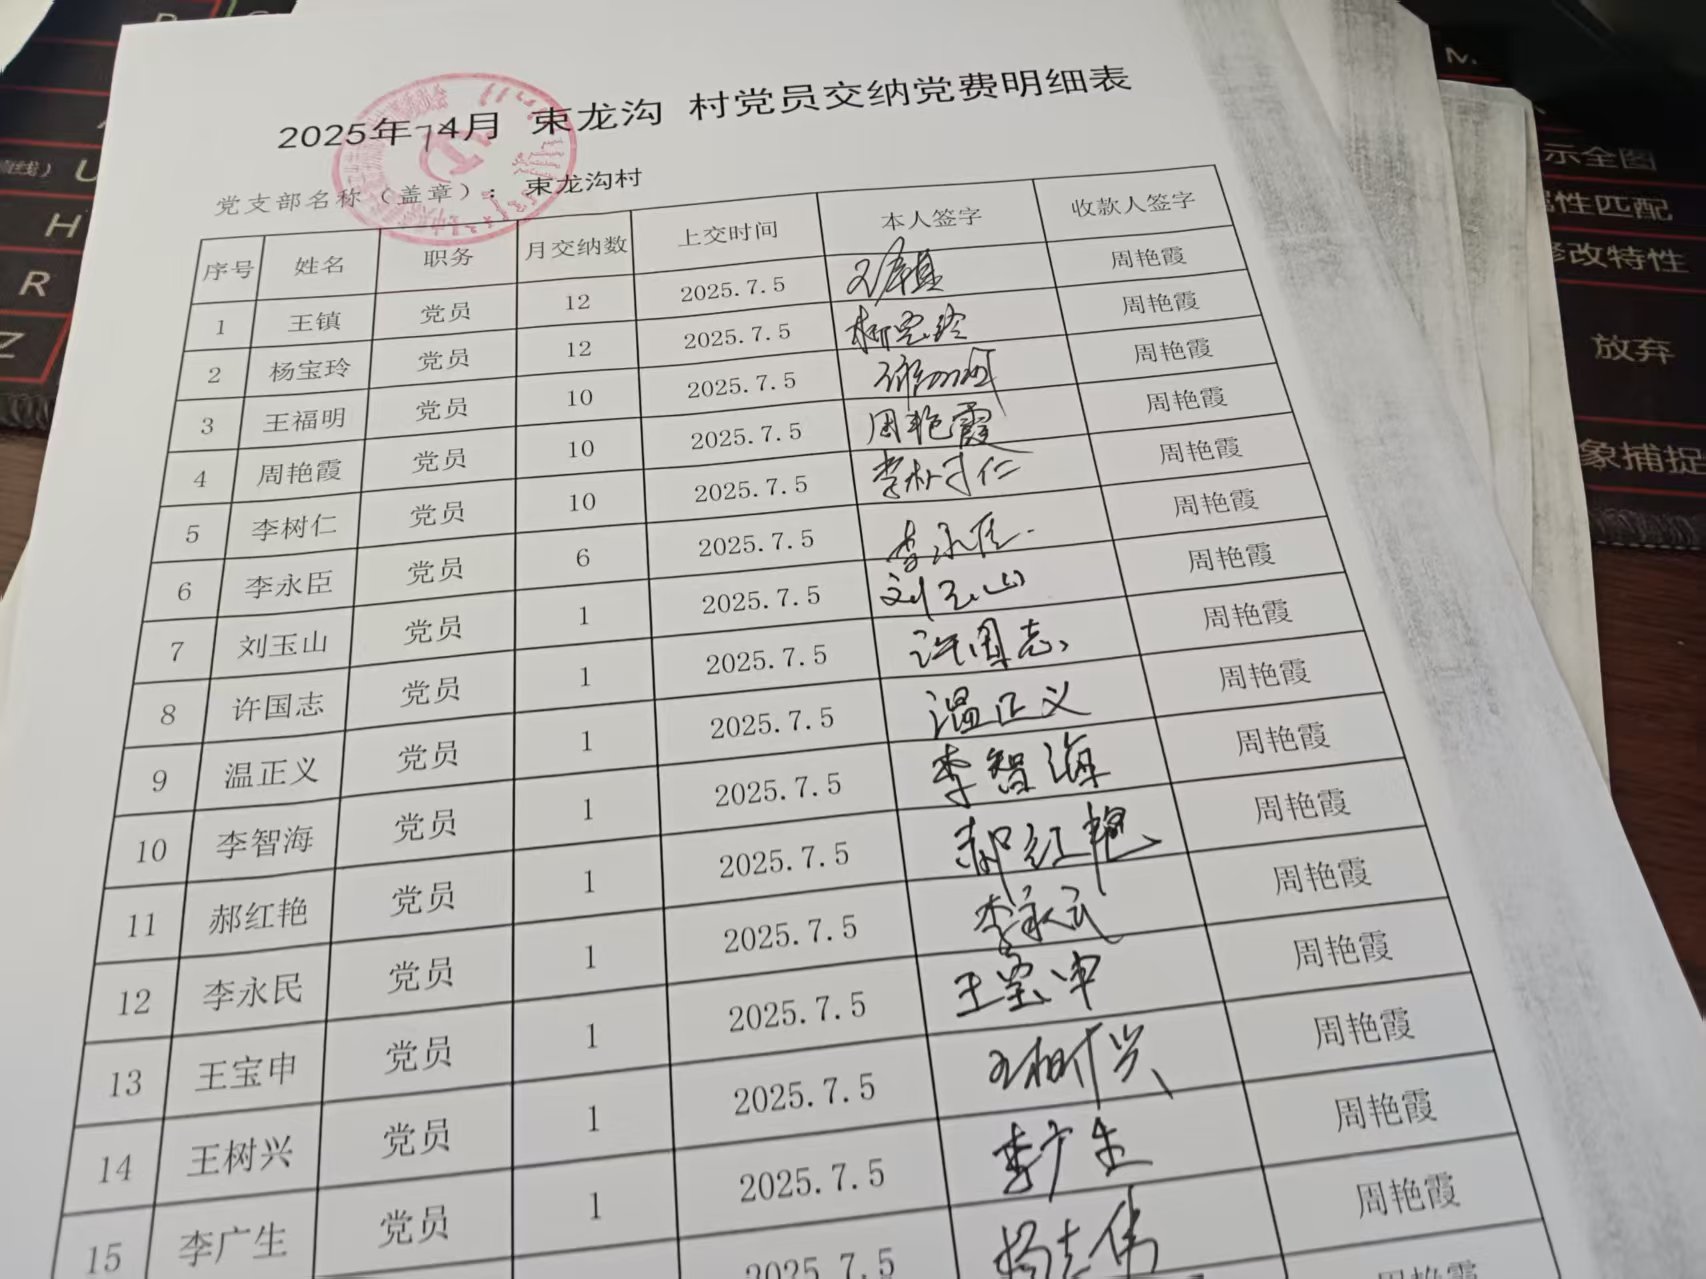 2025年 7 4月 東龙沟 村党员交纳党费明细表
党支部名称（盖章）： 東龙沟村
序号 姓名 职务 月交纳数 上交时间 本人签字 收款人签字
1 王镇 党员 12 2025.7.5 周艳霞
2 杨宝玲 党员 12 2025.7.5 杨宝玲 周艳霞
3 王福明 党员 10 2025.7.5 王福明 周艳霞
4 周艳霞 党员 10 2025.7.5 周艳霞 周艳霞
5 李树仁 党员 10 2025.7.5 李树仁 周艳霞
6 李永臣 党员 6 2025.7.5 李永臣 周艳霞
7 刘玉山 党员 1 2025.7.5 刘玉山 周艳霞
8 许国志 党员 1 2025.7.5 许国志 周艳霞
9 温正义 党员 1 2025.7.5 温正义 周艳霞
10 李智海 党员 1 2025.7.5 李智海 周艳霞
11 郝红艳 党员 1 2025.7.5 郝红艳 周艳霞
12 李永民 党员 1 2025.7.5 李永民 周艳霞
13 王宝申 党员 1 2025.7.5 王宝申 周艳霞
14 王树兴 党员 1 2025.7.5 王树兴 周艳霞
15 李广生 党员 1 2025.7.5 李广生 周艳霞
2025.7.5 杨志伟 周艳霞
U
H
R
Z
M
示全图
属性匹配
修改特性
放弃
象捕捉